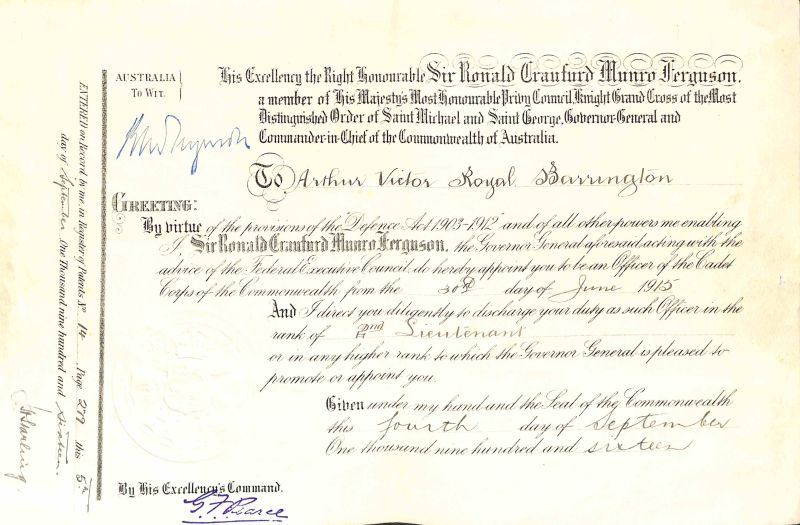 AUSTRALIA
TO WIT.
His Excellency the Right Honourable Sir Ronald Craufurd Munro Ferguson,
a member of His Majesty's Most Honourable Privy Council, Knight Grand Cross of the Most
Distinguished Order of Saint Michael and Saint George, Governor-General and
Commander-in-Chief of the Commonwealth of Australia.
To Arthur Victor Royal Barrington
GREETING:
By virtue of the provisions of the Defence Act 1903-1912 and of all other powers me enabling
I, Sir Ronald Craufurd Munro Ferguson, the Governor General aforesaid, acting with the
advice of the Federal Executive Council, do hereby appoint you to be an Officer of the Cadet
Corps of the Commonwealth from the 30th day of June 1915
And I direct you diligently to discharge your duty as such Officer in the
rank of 2nd Lieutenant
or in any higher rank to which the Governor General is pleased to
promote or appoint you.
Given under my hand and the Seal of the Commonwealth
this fourth day of September
One thousand nine hundred and sixteen
By His Excellency's Command.
G.F. Pearce
ENTERED on Record by me, in Register of Patents No 14 Page 279 this 5th
day of September One Thousand nine hundred and Sixteen.